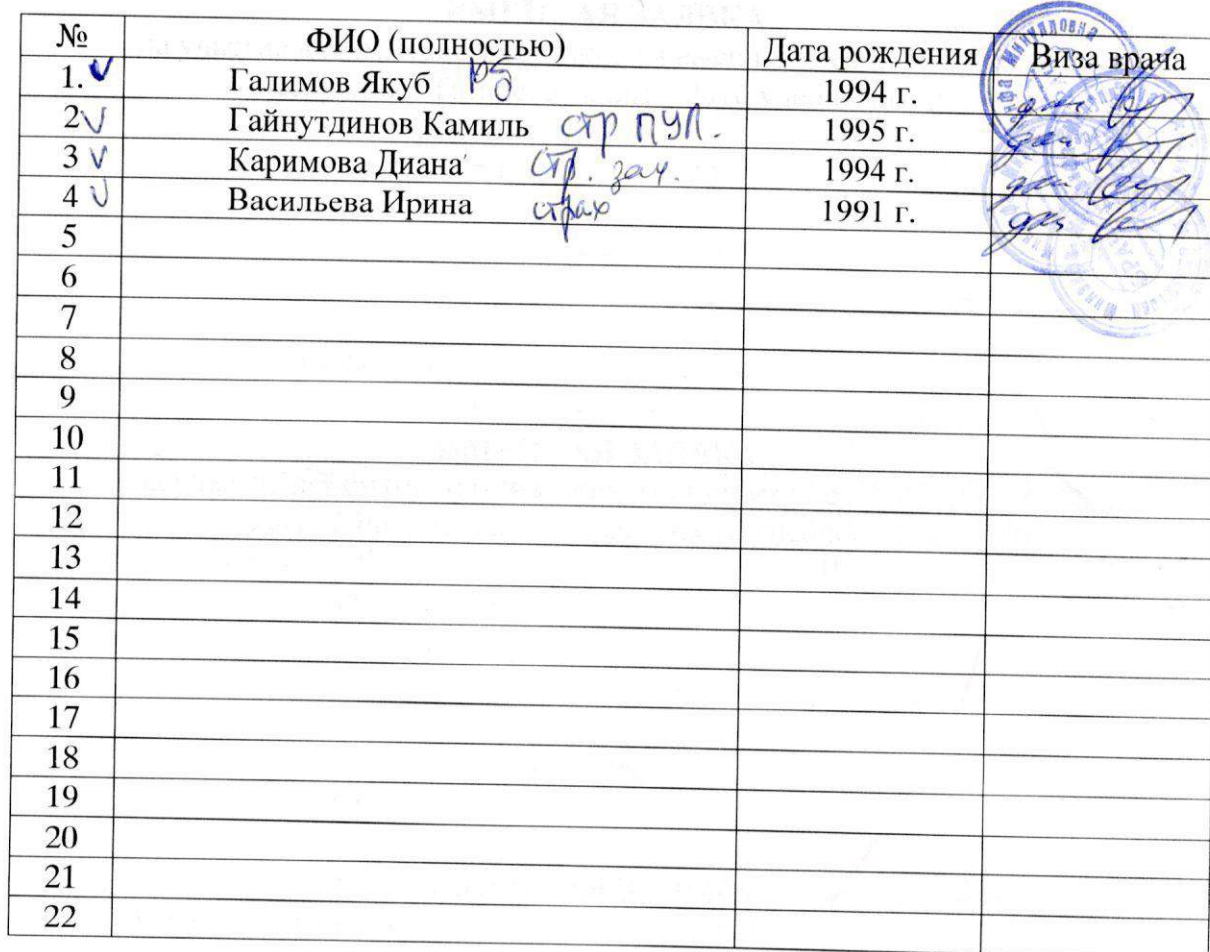 № ФИО (полностью) Дата рождения Виза врача
1. Галимов Якуб 1994 г.
2 Гайнутдинов Камиль стр ПУЛ. 1995 г.
3 Каримова Диана стр. зач. 1994 г.
4 Васильева Ирина страх 1991 г.
5
6
7
8
9
10
11
12
13
14
15
16
17
18
19
20
21
22